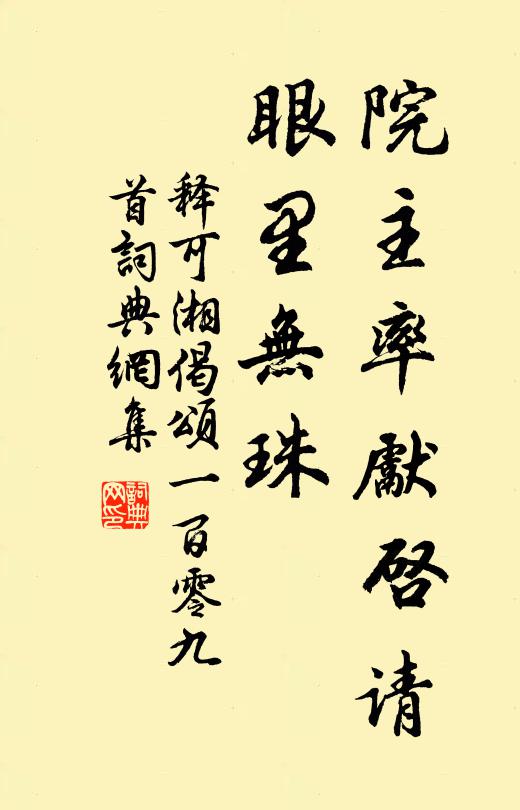 院主率獻啓请
眼里無珠
释可湘偈頌一百零九
首詞典網集
詞典
网印